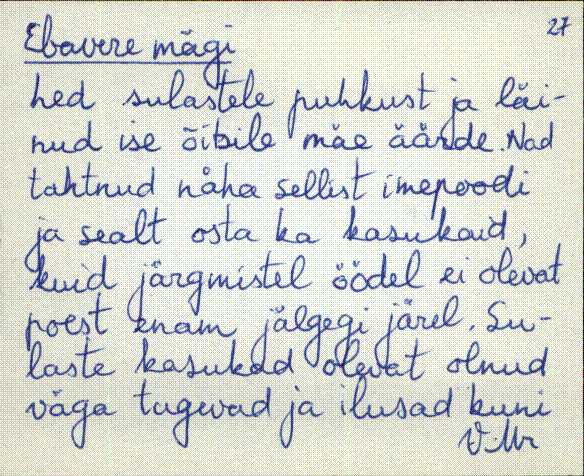 27
Ebavere mägi
hed sulastele puhkust ja läi-
nud ise õitsile mäe äärde. Nad
tahtnud näha sellist imepoodi
ja sealt osta ka kasukaid,
kuid järgmistel öödel ei olevat
poest enam jälgegi järel. Su-
laste kasukad olevat olnud
väga tugevad ja ilusad kuni
V-Mr